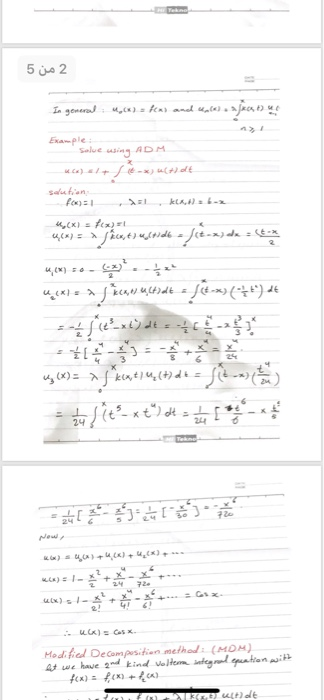 Tekno
2 من 5
In general : u₀(x) = f(x) and uₙ(x) = λ∫k(x,t) u
n ≥ 1
Example:
Solve using ADM
u(x) = 1 + ∫₀ˣ (t-x) u(t) dt
solution:
f(x) = 1 , λ = 1 , k(x,t) = t-x
u₀(x) = f(x) = 1
u₁(x) = λ ∫ k(x,t) u₀(t) dt = ∫₀ˣ (t-x) dx = (t-x
2
u₁(x) = 0 - (-x)²/2 = -1/2 x²
u₂(x) = λ ∫₀ˣ k(x,t) u₁(t) dt = ∫₀ˣ (t-x) (-1/2 t²) dt
= -1/2 ∫₀ˣ (t³ - xt²) dt = -1/2 [t⁴/4 - x t³/3]₀ˣ
= -1/2 [x⁴/4 - x⁴/3] = -x⁴/8 + x⁴/6 = x⁴/24
u₃(x) = λ ∫₀ˣ k(x,t) u₂(t) dt = ∫₀ˣ (t-x) (t⁴/24)
= 1/24 ∫₀ˣ (t⁵ - x t⁴) dt = 1/24 [t⁶/6 - x t⁵/5
Tekno
= 1/24 [x⁶/6 - x⁶/5] = 1/24 [-x⁶/30] = -x⁶/720
Now,
u(x) = u₀(x) + u₁(x) + u₂(x) + ...
u(x) = 1 - x²/2 + x⁴/24 - x⁶/720 + ...
u(x) = 1 - x²/2! + x⁴/4! - x⁶/6! + ... = Cos x
∴ u(x) = cos x.
Modified Decomposition method: (MDM)
let we have 2nd kind Volterra integral equation with
f(x) = f₁(x) + f₂(x)
k(x,t) u(t) dt